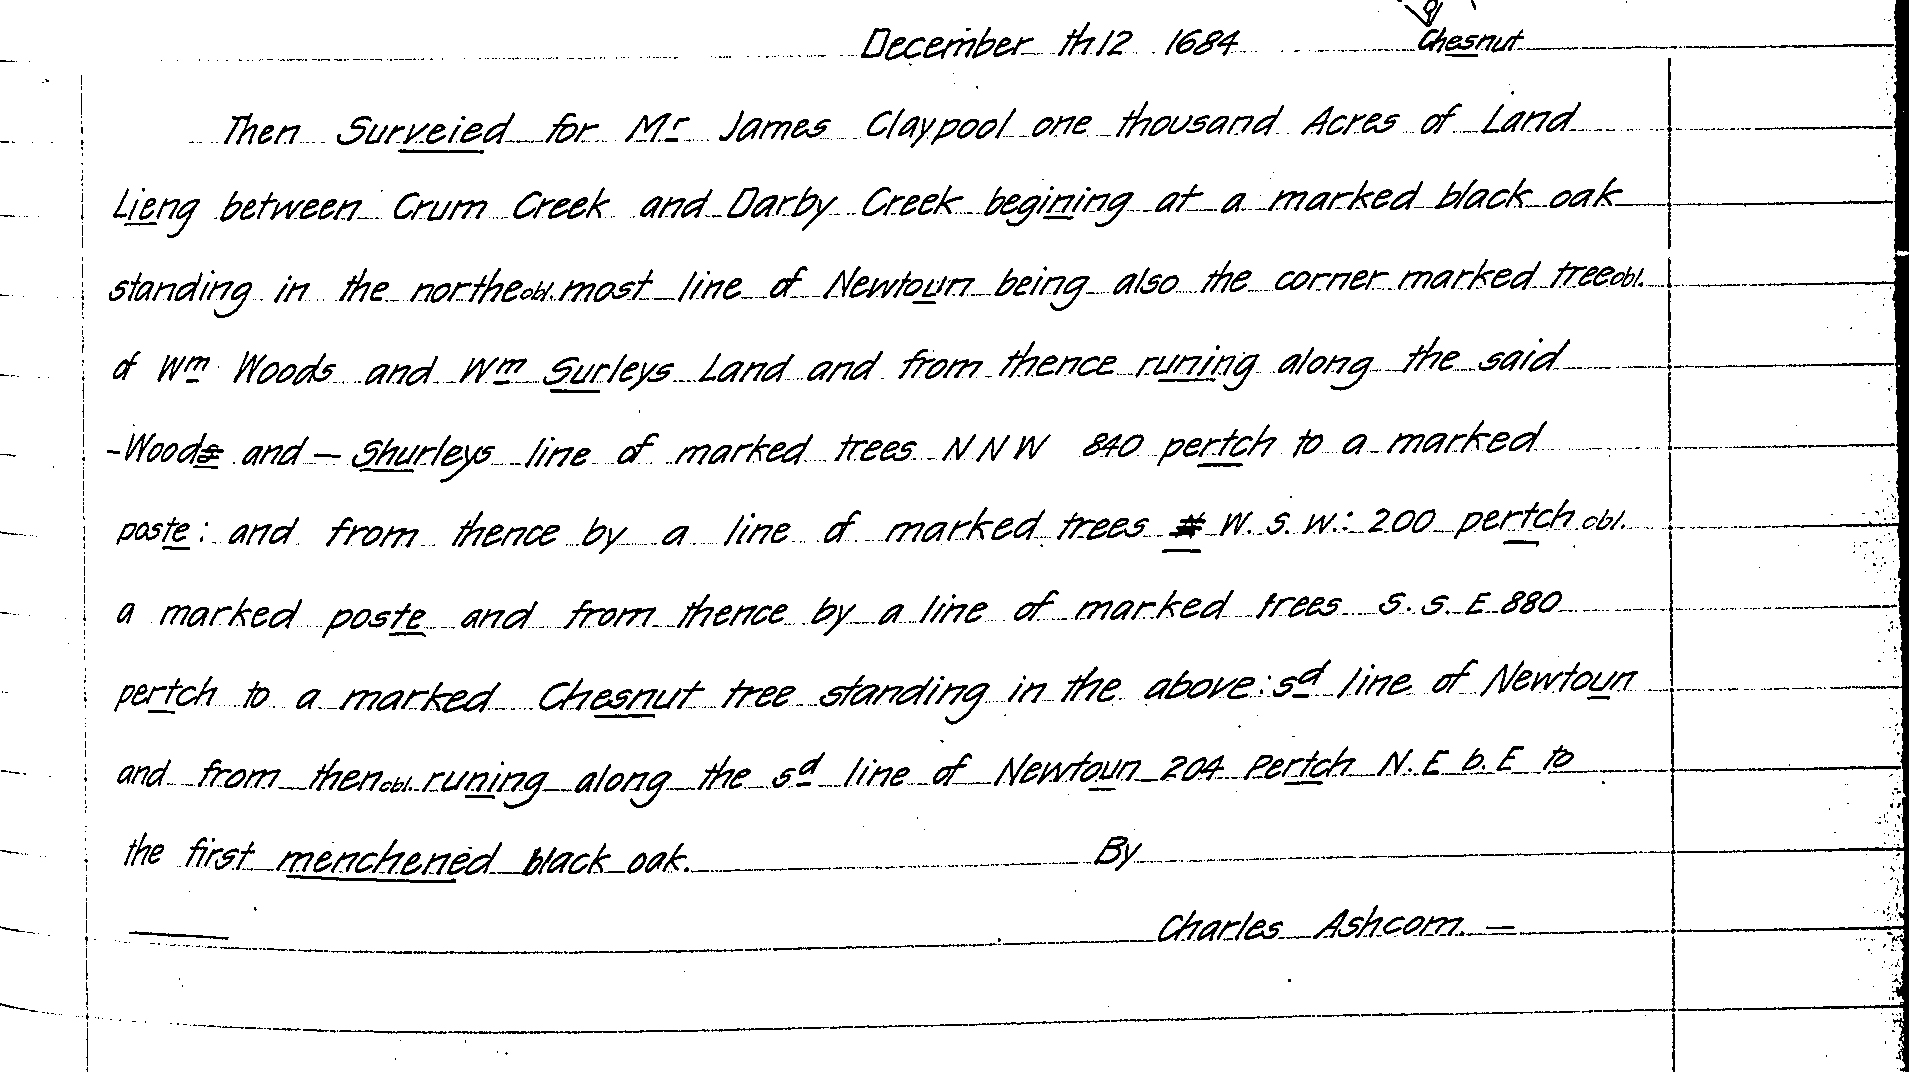 December th 12 1684 Chesnut
Then Surveied for Mr James Claypool one thousand Acres of Land
Lieng between Crum Creek and Darby Creek begining at a marked black oak
standing in the northe obl. most line of Newtoun being also the corner marked tree obl.
of Wm Woods and Wm Surleys Land and from thence runing along the said
-Woods and - Shurleys line of marked trees N N W 840 pertch to a marked
poste: and from thence by a line of marked trees W. S. W.: 200 pertch obl.
a marked poste and from thence by a line of marked trees S. S. E 880
pertch to a marked Chesnut tree standing in the above: sd line of Newtoun
and from then obl. runing along the sd line of Newtoun 204 Pertch N. E b. E to
the first menchened black oak. By
Charles Ashcom. -